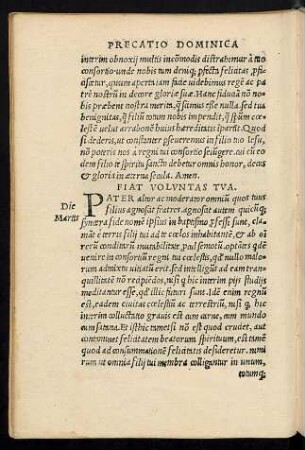 PRECATIO DOMINICA
interim obnoxij multis incōmodis distrahemur à tuo
consortio unde nobis tum deniq; pfecta felicitas pfici
scetur, quum apertiam facie videbimus regē ac pa
trē nostrū in decore gloriæ suæ. Hanc fiduciā nō no
bis præbent nostra merita, q̄ scimus esse nulla. sed tua
benignitas, q̄ filiū totum nobis impendit, q̄ spūm cœ
lestē uelut arrabonē huius hæreditatis īpartit. Quod
si dederis, ut constanter pseueremus in filio tuo Iesu,
nō poteris nos à regni tui consortio seiūgere. cui cū eo
dem filio & spiritu sancto debetur omnis honor, deus
& gloria in æterna secula. Amen.
FIAT VOLVNTAS TVA.
Die
Martis
PATER altor ac moderator omniū quos tuus
filius agnoscit fratres, agnoscit autem quicūq;
syncera fide nomē ipsius in baptismo pfessi sunt, cla
māt è terris filij tui ad te cœlos inhabitantē, & ab oī
rerū conditarū mutabilitate, pcul semotū, optantes q̄
dem uenire in consortiū regni tui cœlestis, qd' nullo ma
lorum admixtu uitiatū erit. sed intelligūt ad eam tran
quillitatē nō recipiēdos, nisi q̄ hic interim pijs studijs
meditantur esse, qd' illic futuri sunt. Idē enim regnū
est, eadem ciuitas cœlestiū ac terrestriū, nisi q, hic
interim colluctatio grauis est cum carne, cum mundo
cum satana. Et isthic tametsi nō est quod crudet, aut
contaminet felicitatem beatorum spirituum, est tamē
quod ad consummationē felicitatis desideretur. nimi
rum ut omnia filij tui membra colligantur in unum,
totumq;